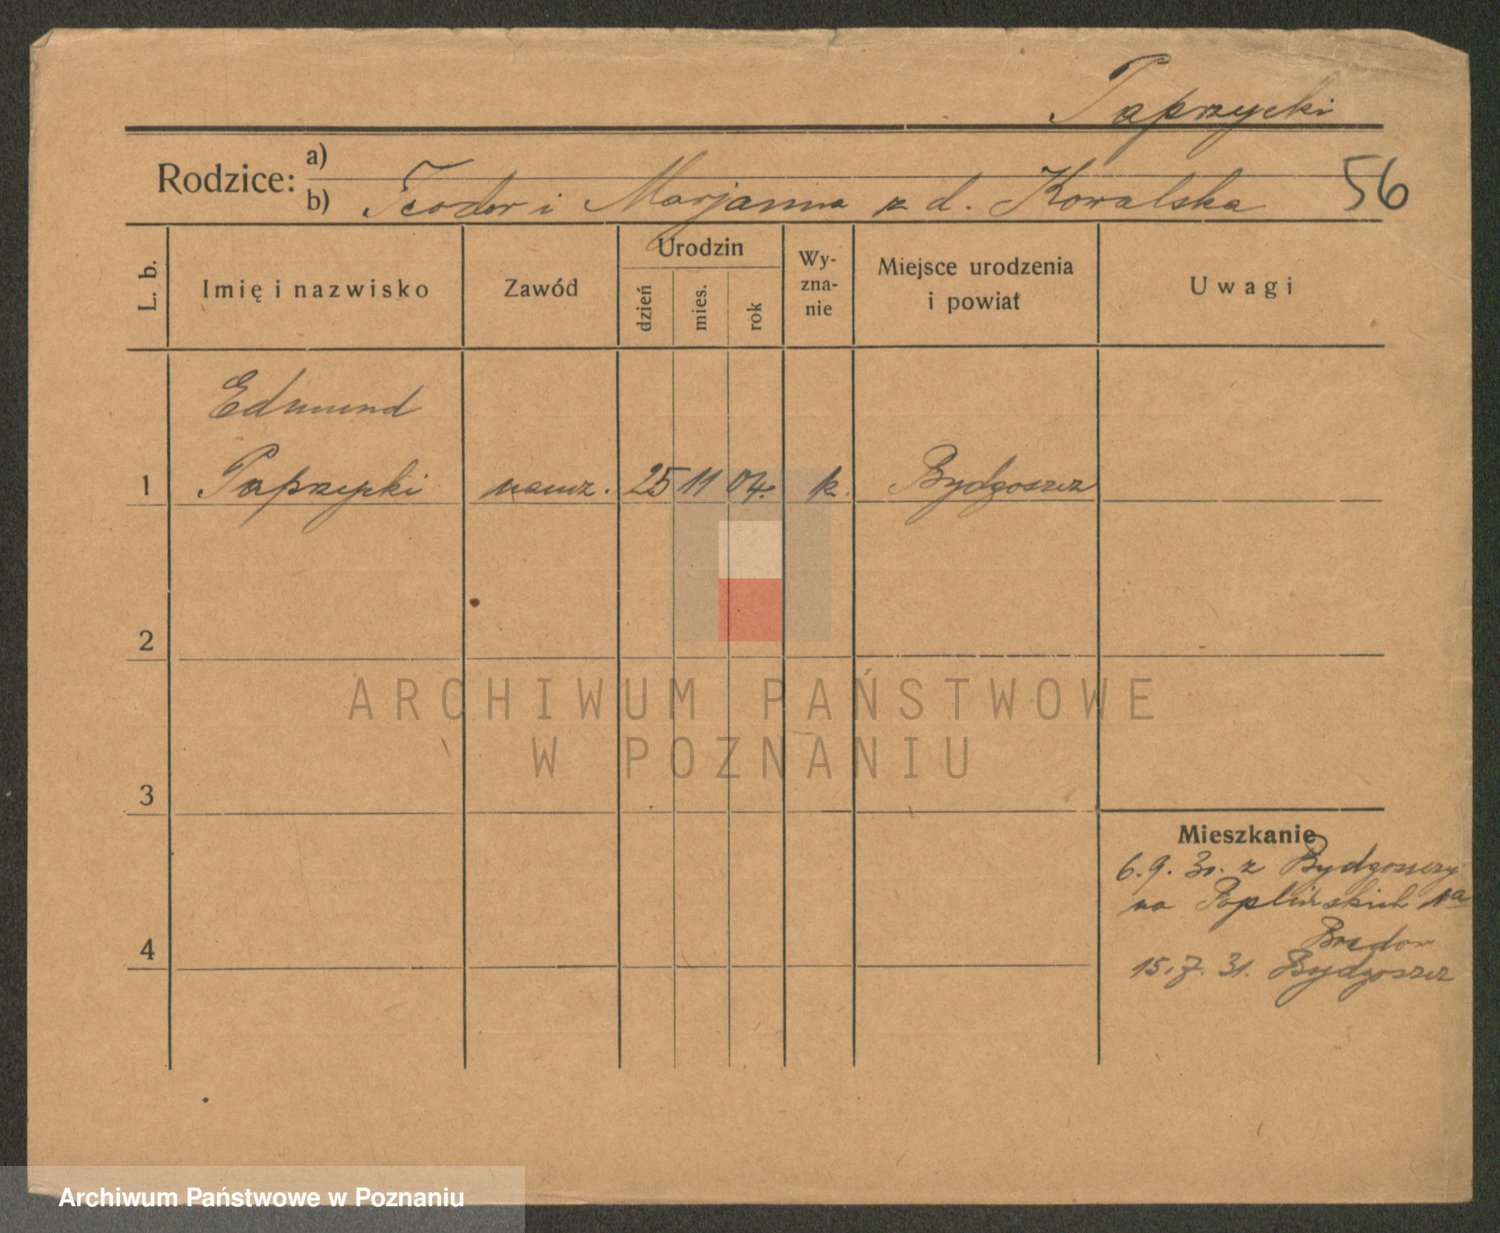 Paprzycki
Rodzice: a)
b) Teodor i Marjanna z d. Kowalska 56
L. b.
Imię i nazwisko
Zawód
Urodzin
dzień
mies.
rok
Wy-
zna-
nie
Miejsce urodzenia
i powiat
Uwagi
Edmund
1 Paprzycki naucz. 25 11 04. k. Bydgoszcz
2
3
4
Mieszkanie
6. 9. 30. z Bydgoszczy
na Poplińskich 1a
15. 7. 31. Bydgoszcz
ARCHIWUM PAŃSTWOWE
W POZNANIU
Archiwum Państwowe w Poznaniu